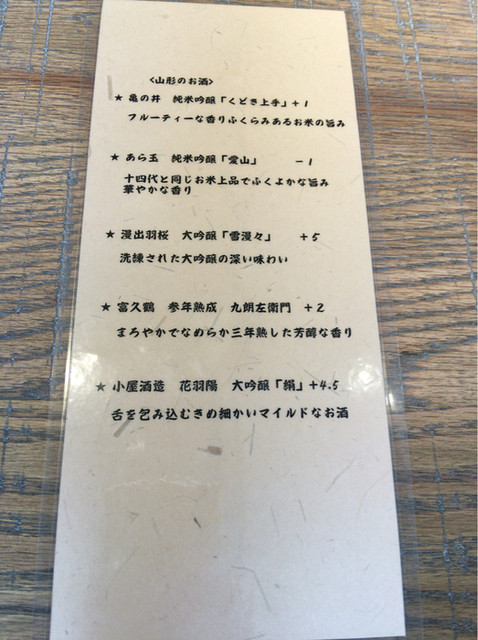 <山形のお酒>
★ 亀の井 純米吟醸「くどき上手」+1
フルーティーな香りふくらみあるお米の旨み
★ あら玉 純米吟醸「愛山」 -1
十四代と同じお米上品でふくよかな旨み
華やかな香り
★ 漫出羽桜 大吟醸「雪漫々」 +5
洗練された大吟醸の深い味わい
★ 富久鶴 参年熟成 九朗左衛門 +2
まろやかでなめらか三年熟した芳醇な香り
★ 小屋酒造 花羽陽 大吟醸「絹」+4.5
舌を包み込むきの細かいマイルドなお酒